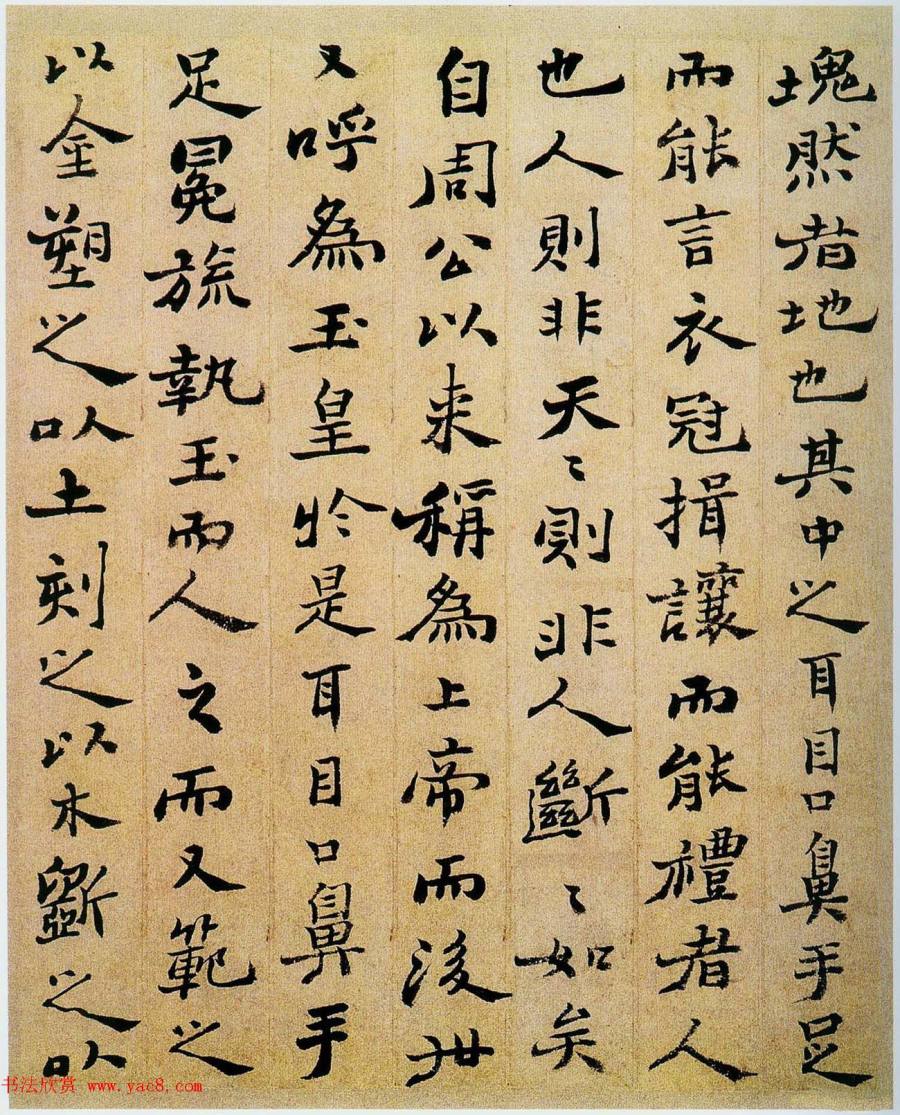 塊然者地也其中之耳目口鼻手足
而能言衣冠揖讓而能禮者人
也人則非天〻則非人斷〻如矣
自周公以来稱為上帝而後世
又呼為玉皇於是耳目口鼻手
足冕旒執玉而人之而又範之
以金塑之以土刻之以木斲之以
书法欣赏 www.yac8.com